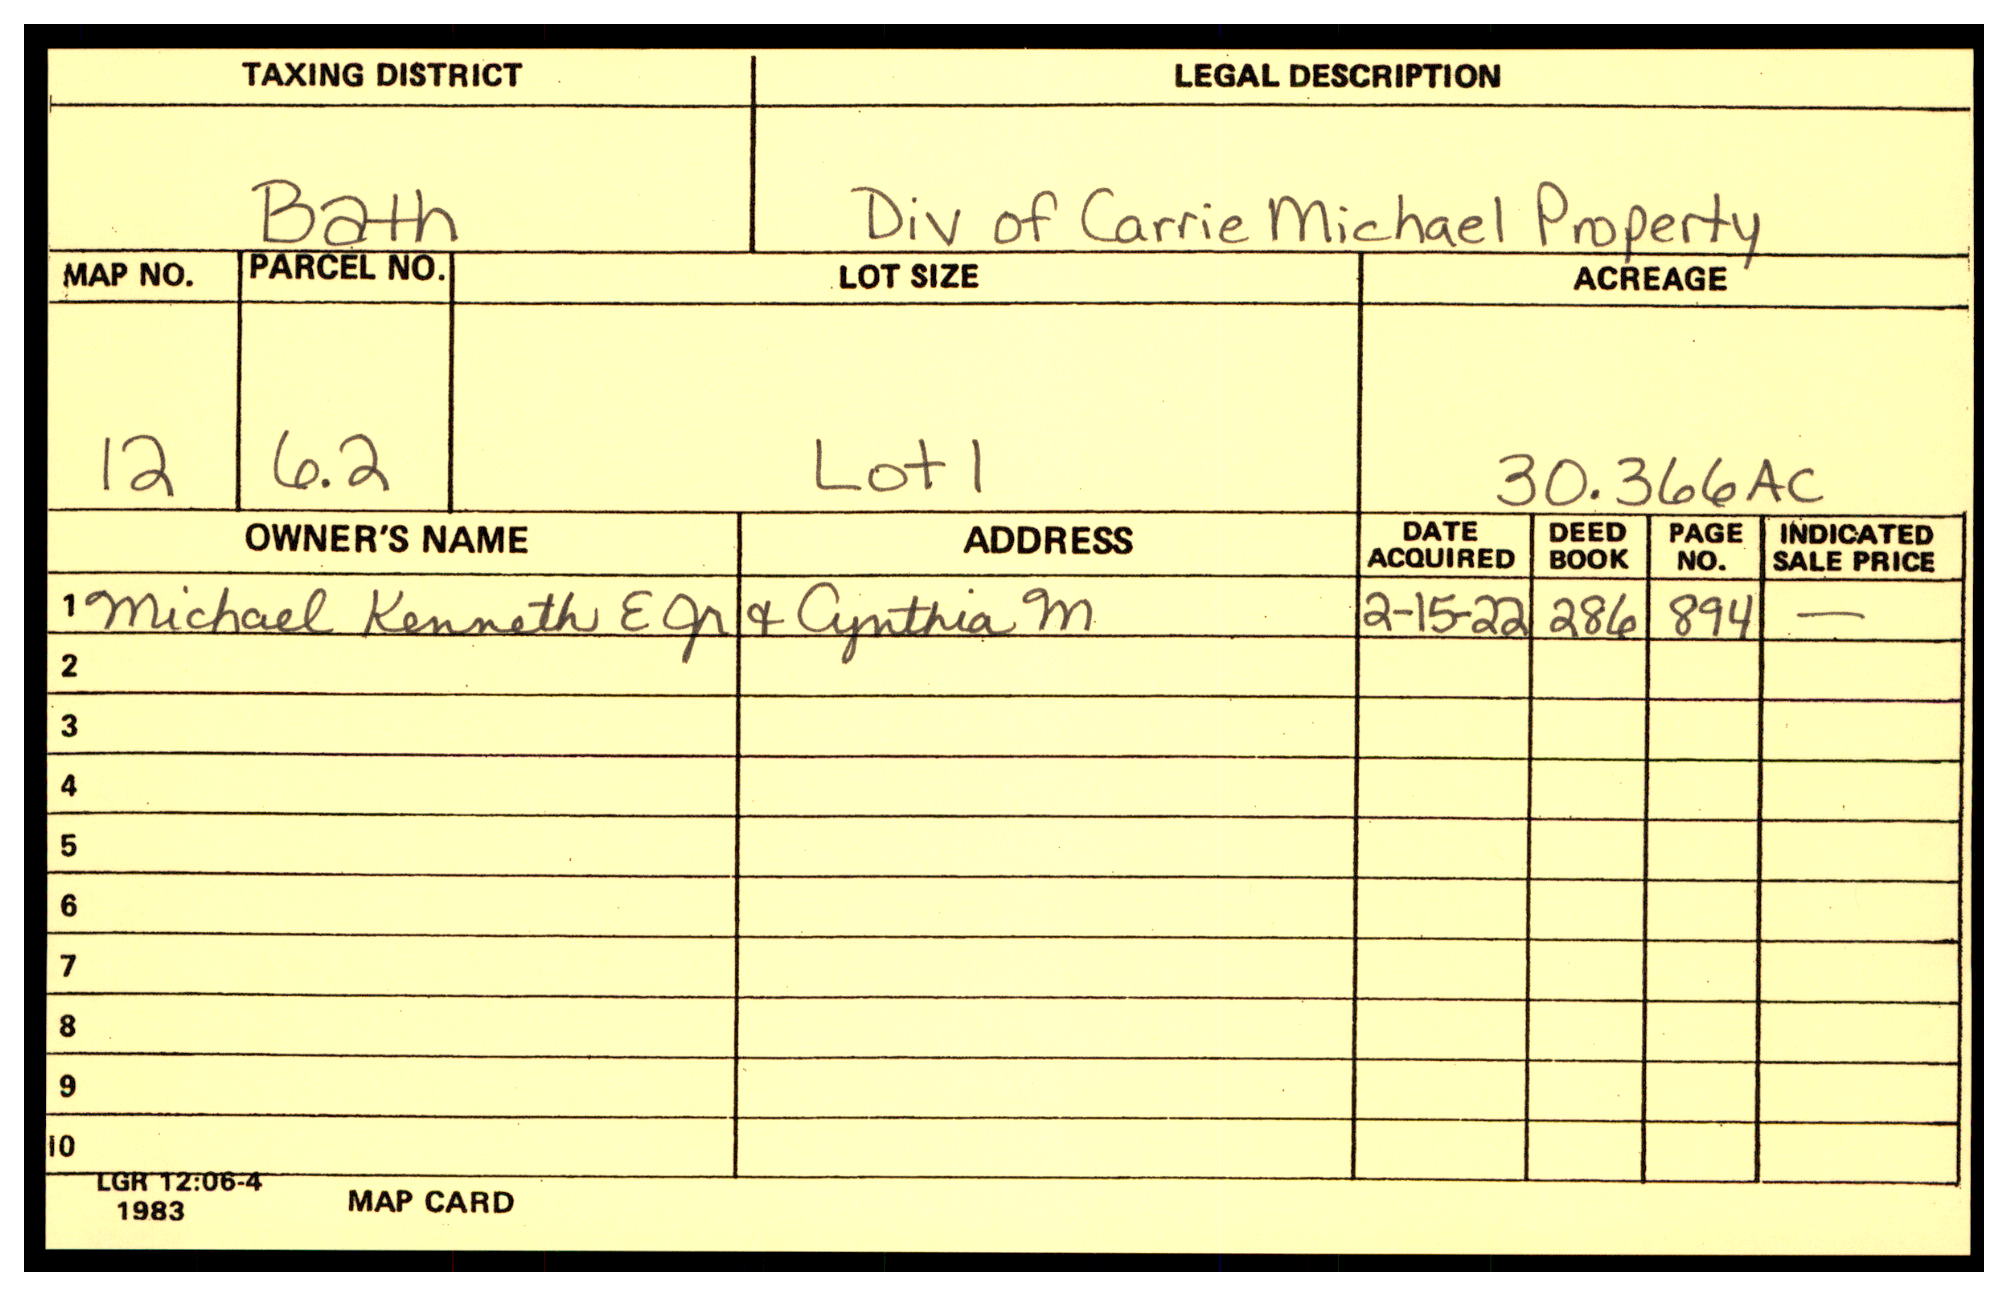 TAXING DISTRICT LEGAL DESCRIPTION
Bath Div of Carrie Michael Property
MAP NO. PARCEL NO. LOT SIZE ACREAGE
12 6.2 Lot 1 30.366 AC
OWNER'S NAME ADDRESS DATE ACQUIRED DEED BOOK PAGE NO. INDICATED SALE PRICE
1 Michael Kenneth E Jr & Cynthia M 2-15-22 286 894 —
2
3
4
5
6
7
8
9
10
LGR 12:06-4
1983 MAP CARD